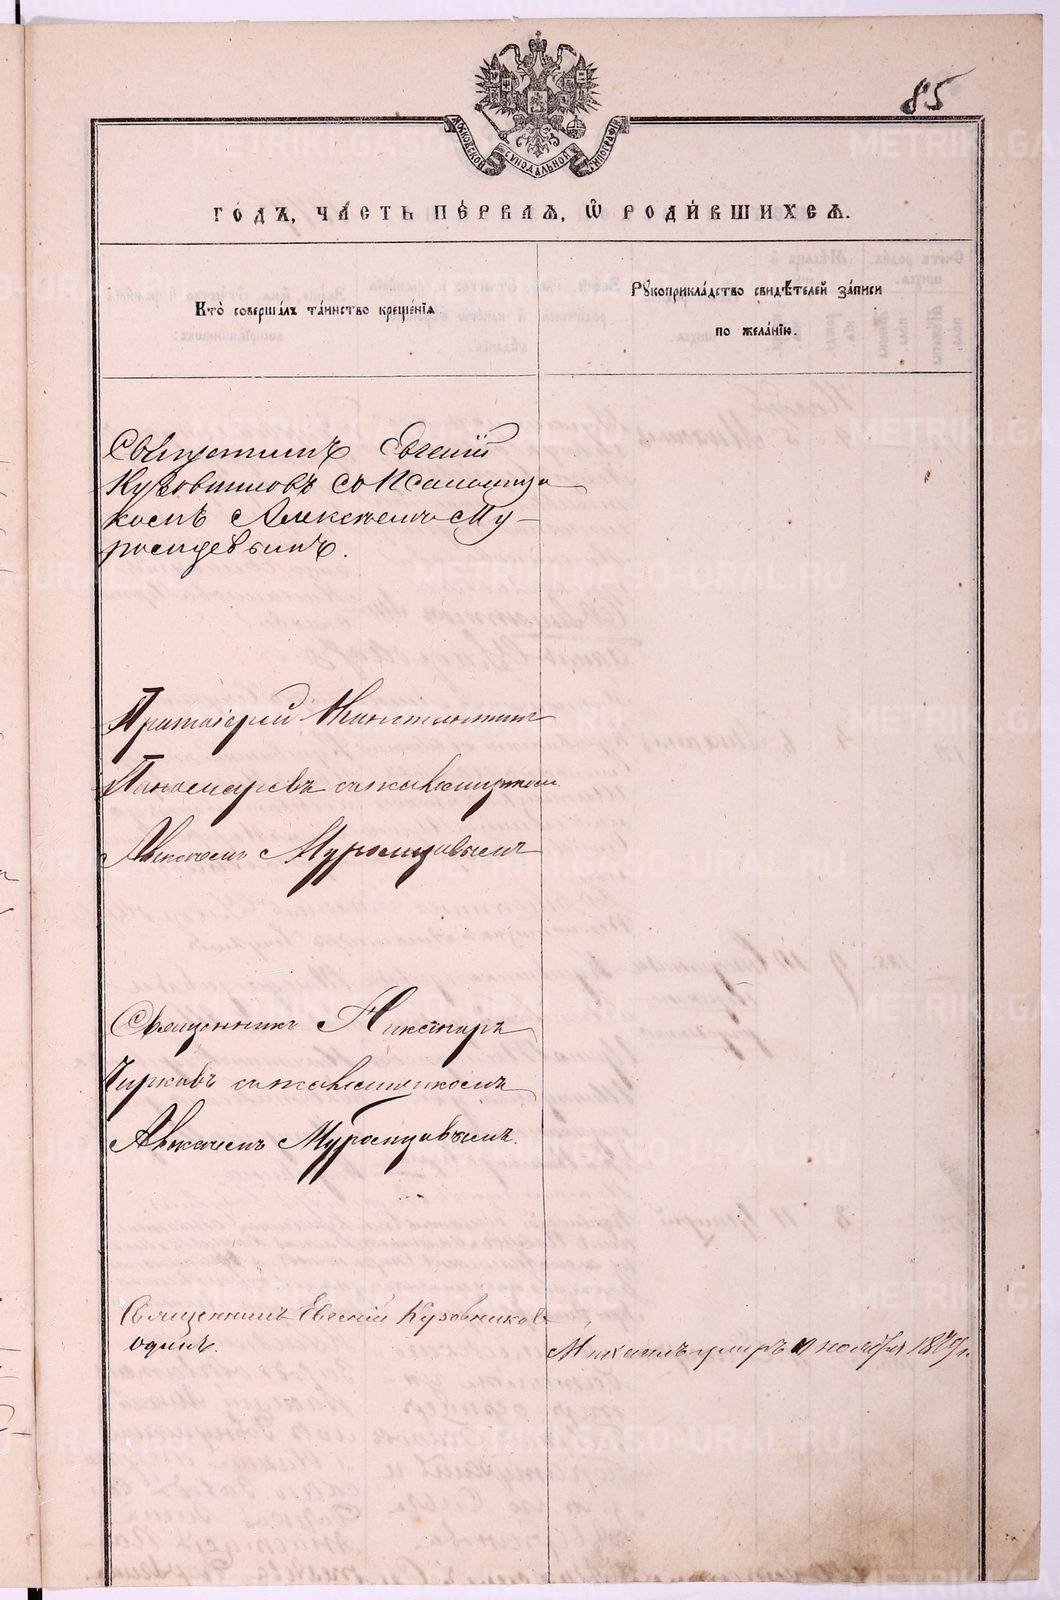 85
МОСКОВСКОЙ СѴНОДАЛЬНОЙ ТИПОГРАФІИ
ГО́ДЪ, ЧА́СТЬ ПЕ́РВАѦ, Ѡ҆ РОДИ́ВШИХСѦ.
Кто̀ соверша́лъ та́инство креще́нїѧ.
Рꙋкоприкла́дство свидѣ́телей за́писи
по жела́нїю.
Священникъ Евгеній
Кузовниковъ съ Псаломщи
комъ Алексѣемъ Му-
ромцевымъ.
Протоіерей Константинъ
Пономаревъ съ псаломщикомъ
Алексѣемъ Муромцовымъ
Священникъ Никаноръ
Чирковъ съ псаломщикомъ
Алексѣемъ Муромцовымъ.
Священникъ Евгеній Кузовниковъ
одинъ.
Михаилъ умиръ ноября 18 г.